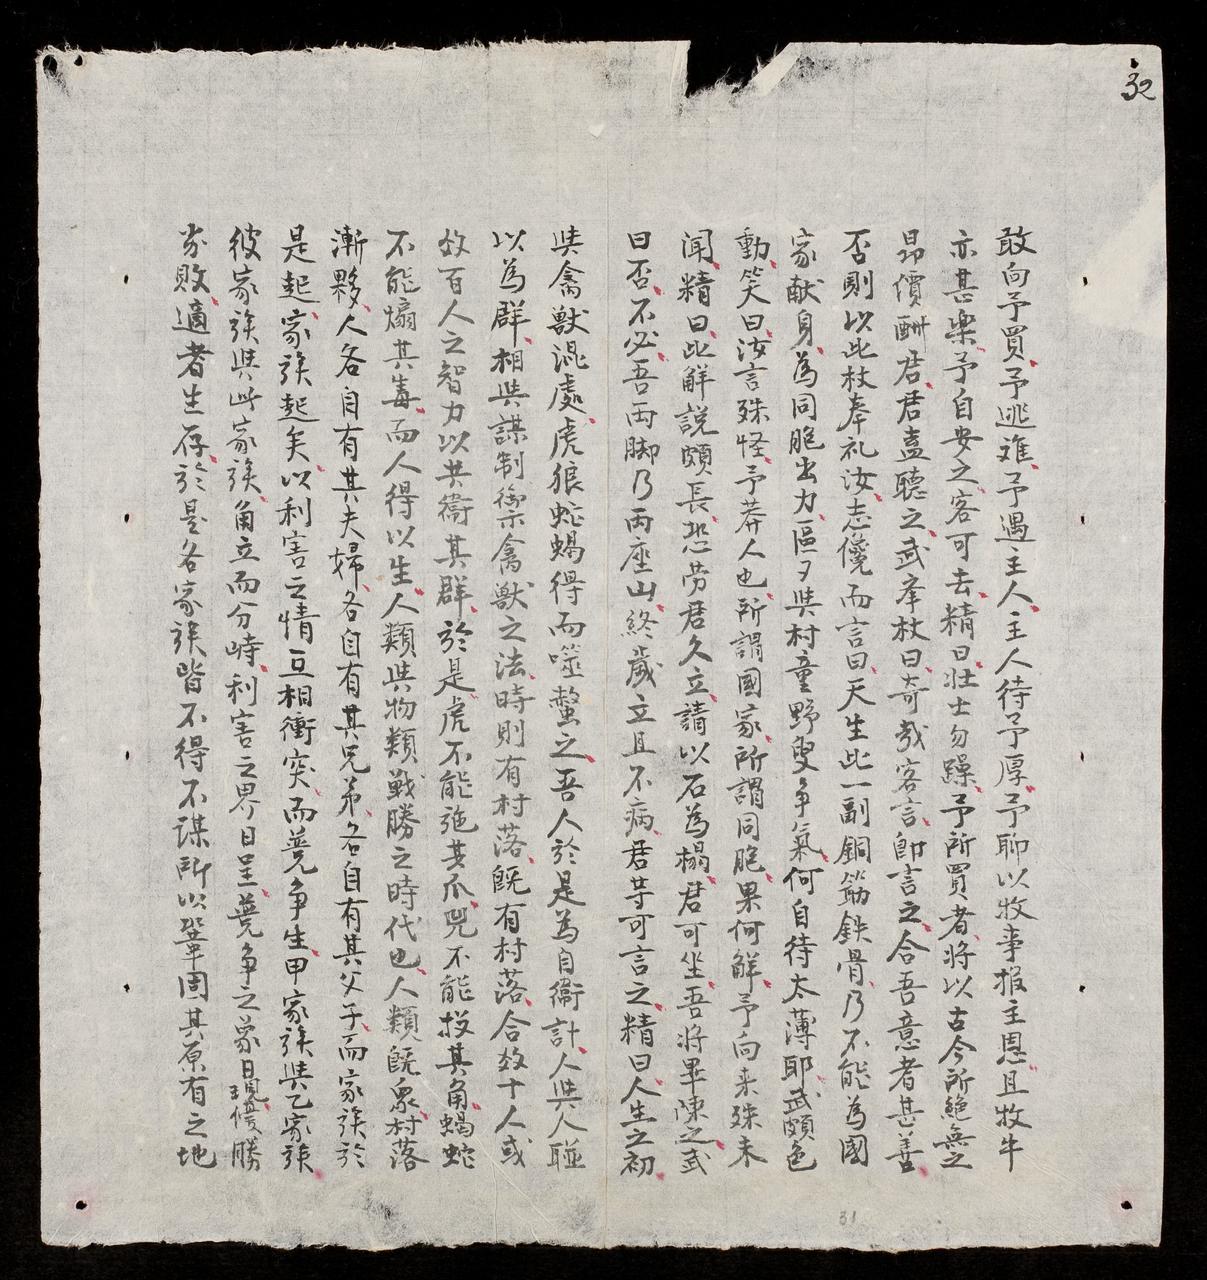 32
敢向予買予逃難予遇主人主人待予厚予聊以牧事报主恩且牧牛
亦甚楽予自安之客可去精曰壮士勿躁予所買者将以古今所絶無之
昂價酬君君盍聽之武牽杖曰奇哉客言卽言之合吾意者甚善
否則以此杖奉礼汝志儳而言曰天生此一副銅筋鉄骨乃不能為國
家献身為同胞出力區々與村童野叟争氣何自待太薄耶武頗色
動笑曰汝言殊怪予莽人也所謂國家所謂同胞果何解予向来殊未
闻精曰此解説頗長恐劳君久立請以石為榻君可坐吾將畢陳之武
曰否不必吾両脚乃両座山終歲立且不病君苐可言之精曰人生之初
與禽獣混處虎狼蛇蝎得而噬螫之吾人於是為自衞計人與人聯
以為群相與謀制禦禽獣之法時則有村落旣有村落合数十人或
数百人之智力以共衞其群於是虎不能施其爪兕不能投其角蝎蛇
不能煽其毒而人得以生人類與物類戦勝之時代也人類旣衆村落
漸夥人各自有其夫婦各自有其兄弟各自有其父子而家族於
是起家族起矣以利害之情互相衝突而競争生甲家族與乙家族
彼家族與此家族角立而分峙利害之界日呈競争之象日現優勝
劣敗適者生存於是各家族皆不得不謀所以鞏固其原有之地
31